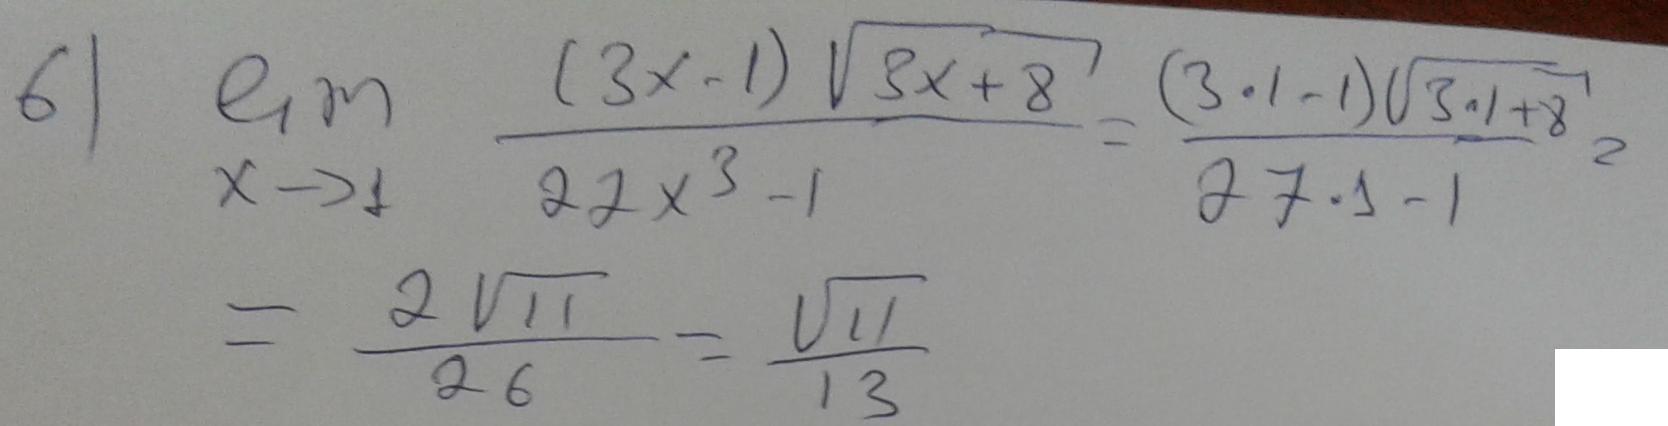 6) lim x→1 (3x-1)√(3x+8) / (27x³-1) = (3·1-1)√(3·1+8) / (27·1-1) =
= 2√11 / 26 = √11 / 13